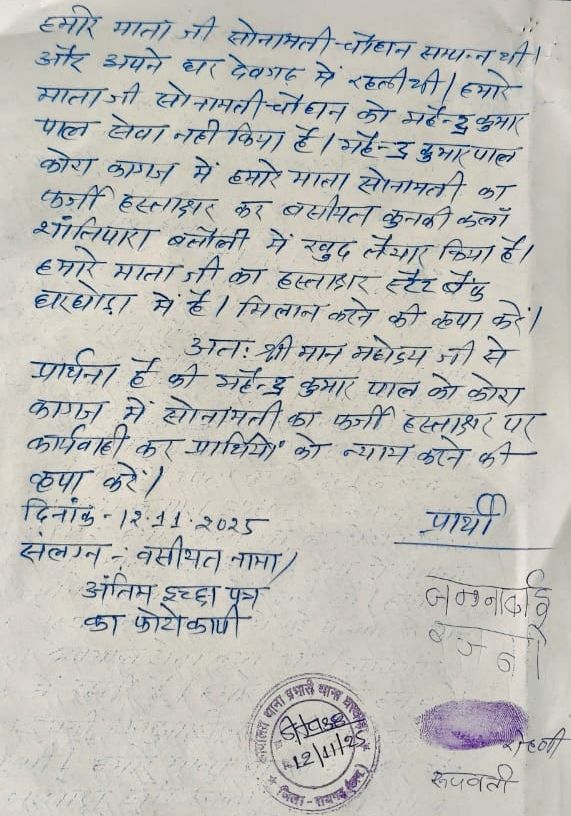 हमारे माता जी सोनामती चौहान सम्पन्न थी।
और अपने घर देवगढ में रहती थी। हमारे
माता जी सोनामती चौहान को महेन्द्र कुमार
पाल सेवा नही किया है। महेन्द्र कुमार पाल
कोरा कागज में हमारे माता सोनामती का
फर्जी हस्ताक्षर कर वसीयत कुनकी कलाँ
शांतिपारा बतौली में खुद तैयार किया है।
हमारे माता जी का हस्ताक्षर स्टेट बैंक
घरघोड़ा में है। मिलान करने की कृपा करें।
अतः श्री मान महोदय जी से
प्रार्थना है की महेन्द्र कुमार पाल को कोरा
कागज में सोनामती का फर्जी हस्ताक्षर पर
कार्यवाही कर प्रार्थियों को न्याय करने की
कृपा करें।
दिनांक - 12.11.2025
संलग्न - वसीयत नामा /
अंतिम इच्छा पत्र
का फोटोकापी
प्रार्थी
राजनी
रूपवती
कार्यालय थाना प्रभारी थाना
12/11/25
जिला - रायगढ़ (छ.ग.)